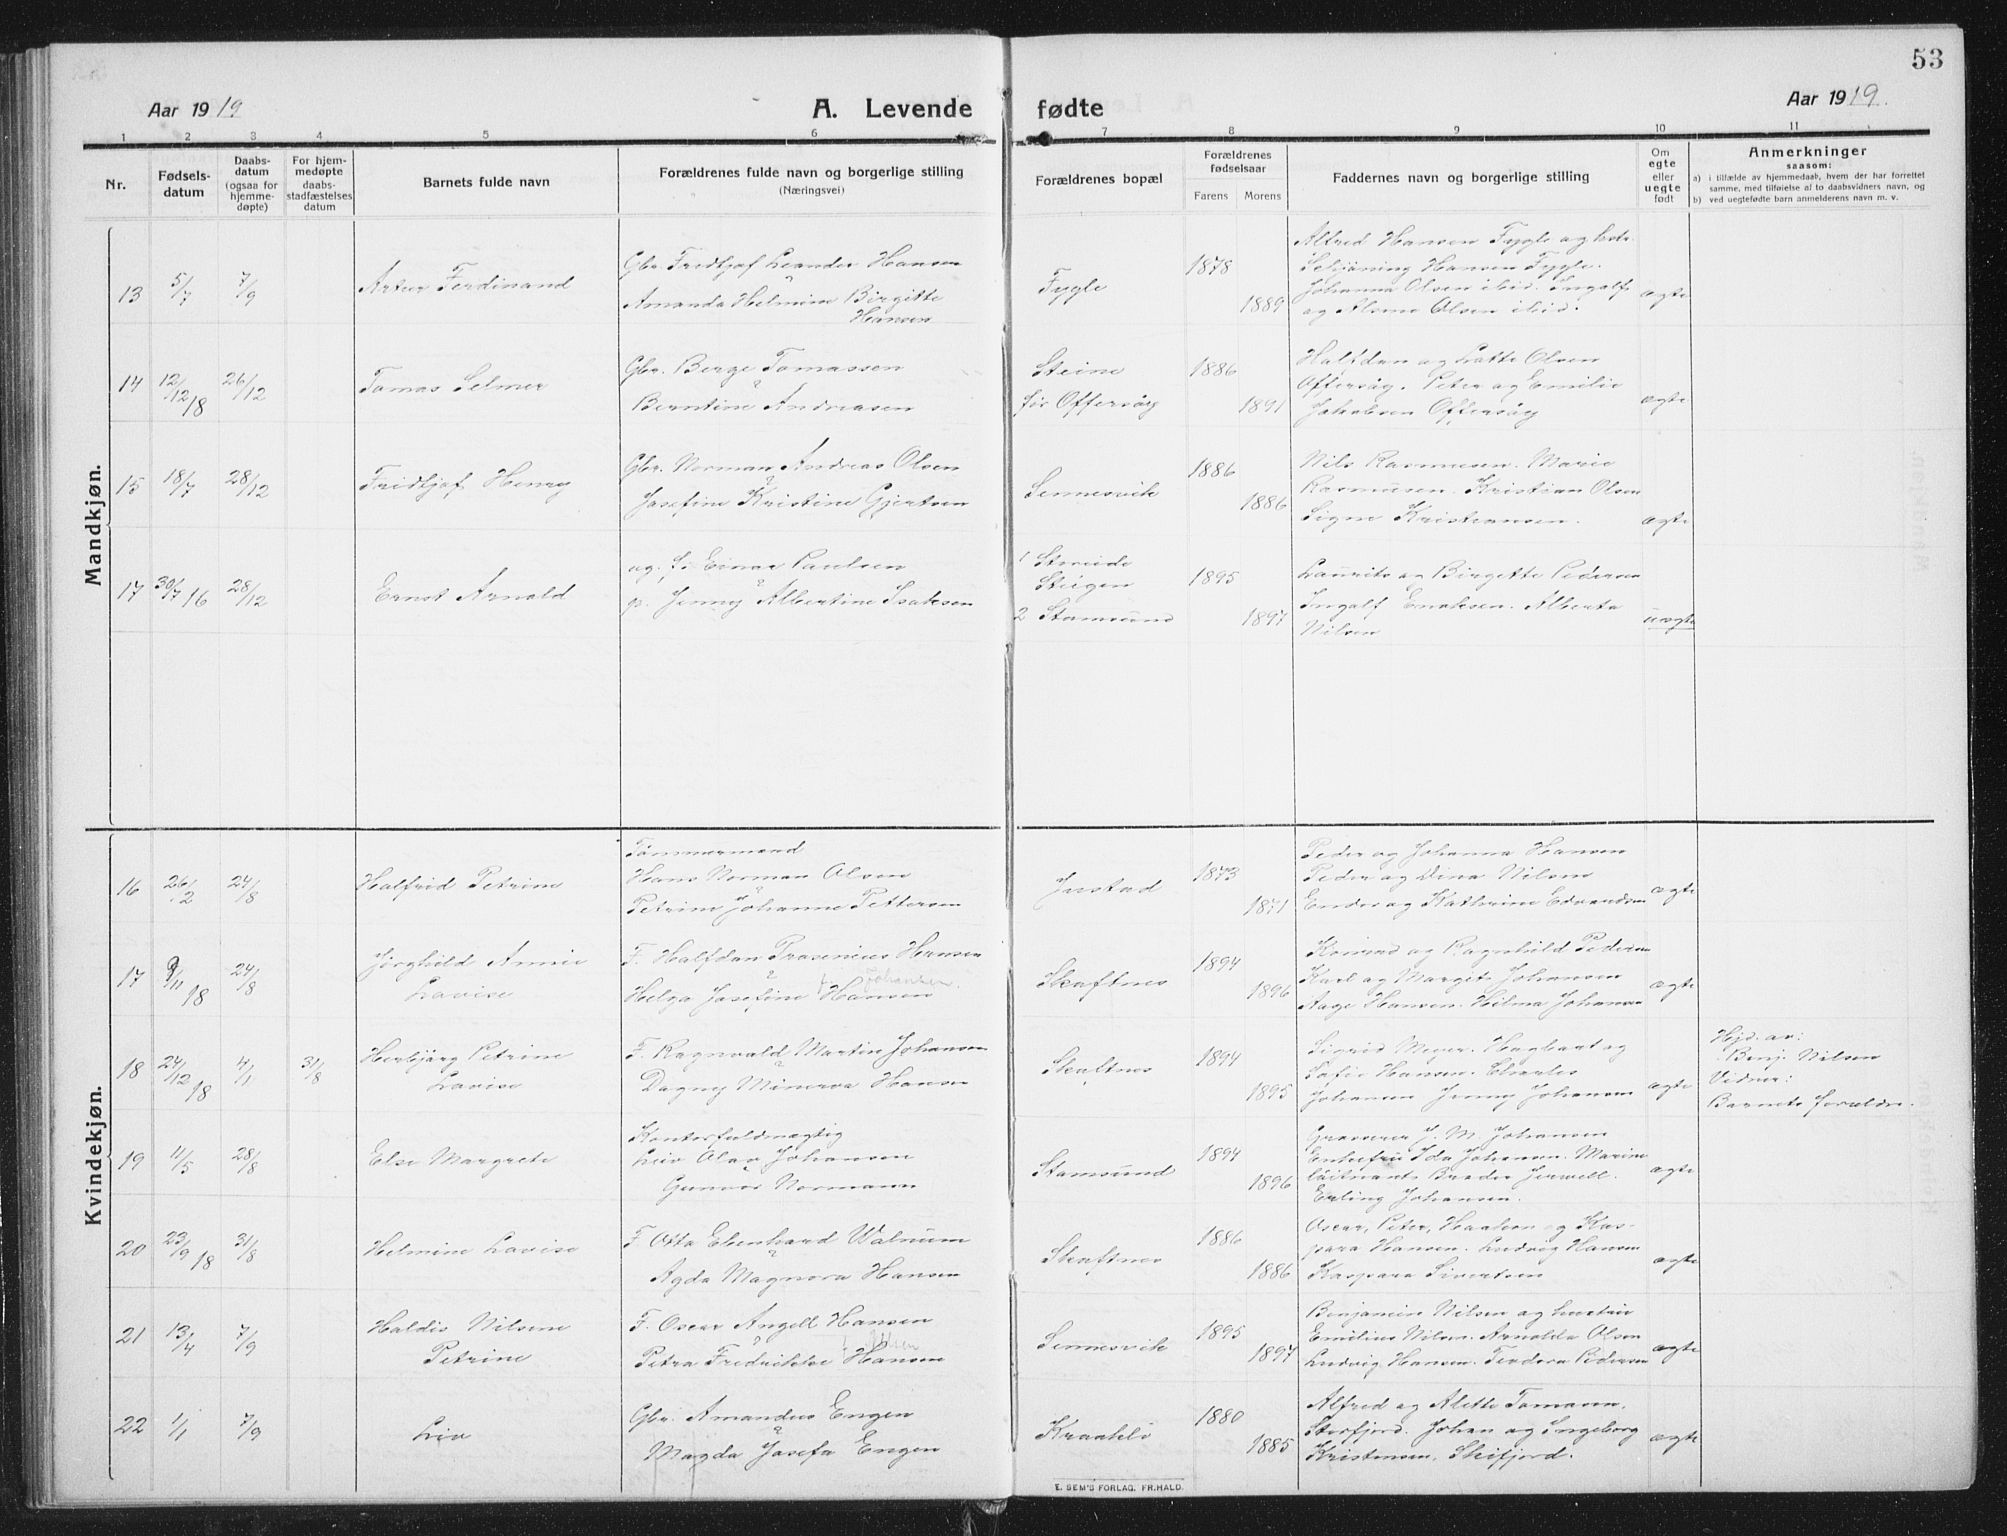 53
Aar 1919
A. Levende fødte
Aar 1919.
1 2 3 4 5 6 7 8 9 10 11
Nr.
Fødsels-
datum
Daabs-
datum
(ogsaa for
hjemme-
døpte)
For hjem-
medøpte
daabs-
stadfæstelses
datum
Barnets fulde navn
Forældrenes fulde navn og borgerlige stilling
(Næringsvei)
Forældrenes bopæl
Forældrenes
fødselsaar
Farens Morens
Faddernes navn og borgerlige stilling
Om
egte
eller
uegte
født
Anmerkninger
saasom:
a) i tilfælde av hjemmedaab, hvem der har forrettet
samme, med tilføielse af to daabsvidners navn, og
b) ved uegtefødte barn anmelderens navn m. v.
Mandkjøn.
13 5/7 7/9 Artur Ferdinand
Gbr. Fredtjof Leander Hansen
Amanda Helmine Birgitte
Hansen
Fygle 1878 1889
Alfred Hansen Fygle og hstr.
Schjøning Hansen Fygle.
Johanna Olsen ibid. Ingolf
og Alsine Olsen ibid.
ægte
14 12/12 18 26/12 Tomas Selmer
Gbr. Berge Tomassen
Berntine Andreasen
Steine
før Offersøy
1886 1891
Halfdan og Lotte Olsen
Offersøy. Peter og Emilie
Jakobsen Offersøy
ægte
15 18/7 28/12 Fridtjof Henry
Gbr. Norman Andreas Olsen
Josefine Kristine Gjertsen
Sennesvik 1886 1886
Nils Rasmusen. Marie
Rasmusen. Kristian Olsen
Signe Kristiansen.
ægte
17 30/7 16 28/12 Ernst Arnold
ug. f. Einar Paulsen
p. Jenny Albertine Isaksen
1
Steigen
2 Stamsund
1895 1897
Laurits og Birgitte Pedersen
Ingolf Enoksen. Alberta
Nilsen
uægte
Kvindekjøn.
16 26/2 24/8 Halfrid Petrine
Tømmermand
Hans Norman Olsen
Petrine Johanne Pettersen
Justad 1873 1871
Peder og Johanna Hansen
Peder og Dina Nilsen
Ender og Kathrine Edvardsen
ægte
17 9/11 18 24/8 Jørghild Annie
Lovise
F. Halfdan Prosenius Hansen
Helga Josefine Hansen
f. Johansen.
Skaftnes 1894 1896
Konrad og Ragnhild Pedersen
Karl og Margit Johansen
Aage Hansen. Hilma Johansen
ægte
18 24/12 18 4/1 31/8 Herbjørg Petrine
Lovise
F. Ragnvald Martin Johansen
Dagny Minerva Hansen
Skaftnes 1894 1895
Sigrid Meyer. Hagbart og
Sofie Hansen. Charles
Johansen Jenny Johansen
ægte
Hjd. av:
Benj. Nilsen
Vidner:
Barnets forældre.
19 11/5 28/8 Else Margrete
Kontorfuldmægtig
Leiv Olav Johansen
Gunvor Normann
Stamsund 1894 1896
Grosserer J. M. Johansen
Enkefru Ida Johansen. Marine
løitnant Jerwell.
Erling Johansen.
ægte
20 23/9 18 31/8 Helmine Lovise
F. Otto Edenhard Walnum
Agda Magnora Hansen
Skaftnes 1886 1886
Oscar, Peter, Haakon og Kas-
para Hansen. Ludvig Hansen
Kaspara Sivertsen
ægte
21 13/4 7/9 Haldis Nilsine
Petrine
F. Oscar Angell Hansen
Petra Fredrikke Hansen
Sennesvik 1895 1897
Benjamin Nilsen og hustru
Emilius Nilsen. Arnolda Olsen
Ludvig Hansen. Teodora Pedersen
ægte
22 1/1 7/9 Liv
Gbr. Amandus Engen
Magda Josefa Engen
Kraakli 1880 1885
Alfred og Alette Tomassen.
Storfjord. Johan og Ingeborg
Kristensen, Skifjord.
ægte
E. SEM'S FORLAG, FR.HALD.